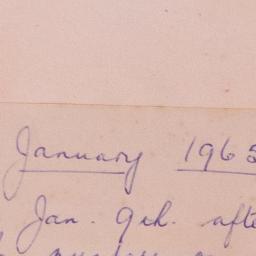 January 1965
Jan. 9th. afte